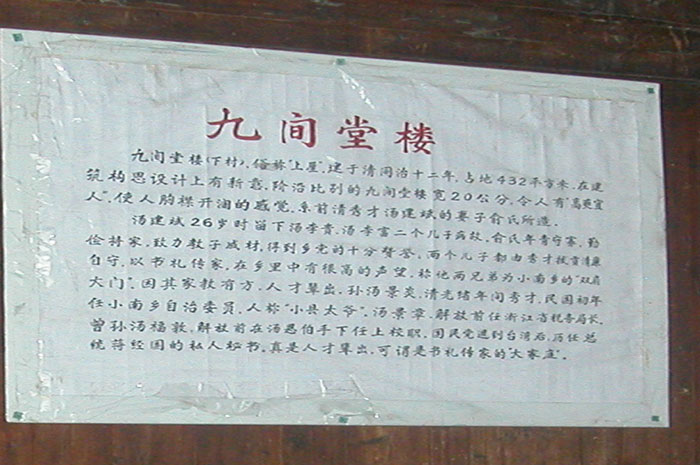 九间堂楼
九间堂楼(下村),俗称"上屋",建于清同治十二年,占地432平方米,在建
筑构思设计上有新意,阶沿比别的九间堂楼宽20公分,令人有"高更宜
人",使人胸襟开涌的感觉,系前清秀才汤建斌的妻子俞氏所造。
汤建斌26岁时留下汤李贵、汤李富二个儿子病故,俞氏年青守寡,勤
俭持家,致力教子成材,得到乡党的十分赞誉,两个儿子都由秀才拔贡清廉
自守,以书礼传家,在乡里中有很高的声望,称他两兄弟为小南乡的"双扇
大门"。因其家教有方,人才辈出,孙汤景炎,清光绪年间秀才,民国初年
任小南乡自治委员,人称"小县太爷",汤景章,解放前任浙江省税务局长,
曾孙汤福敦,解放前在汤恩伯手下任上校职,国民党逃到台湾后,历任总
统蒋经国的私人秘书,真是人才辈出,可谓是书礼传家的"大家庭"。